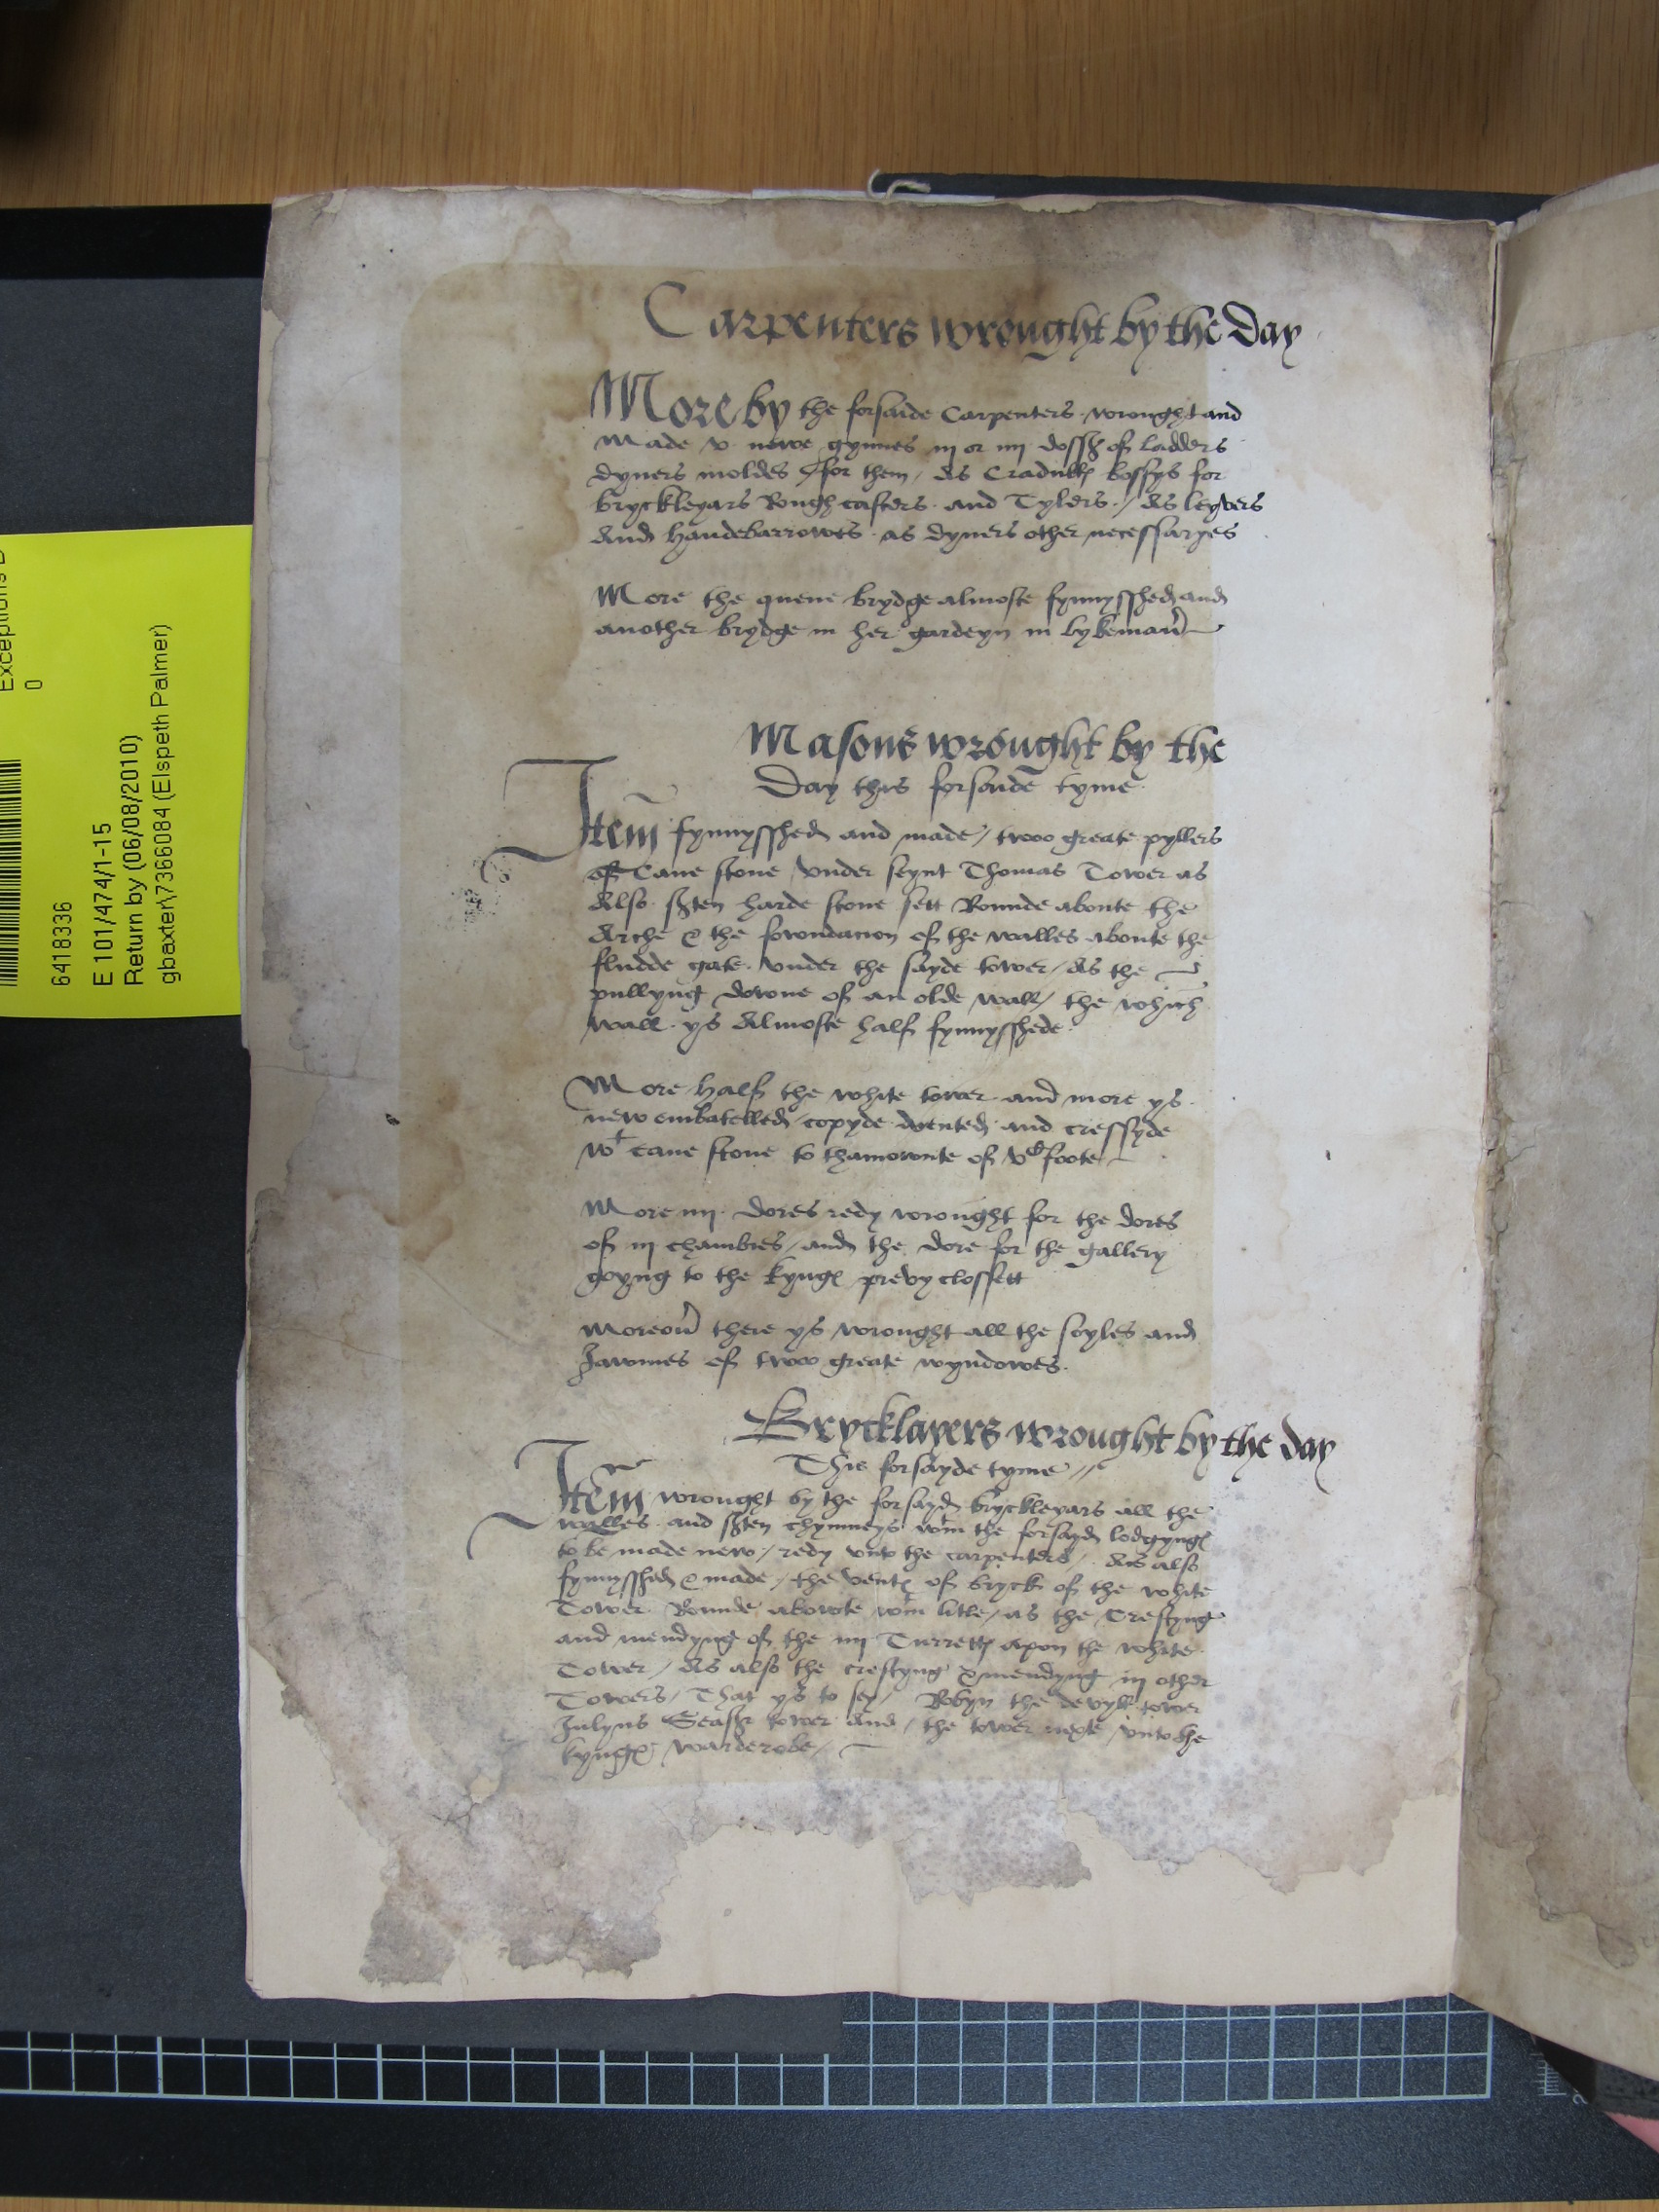 Exceptions
0
6418336
E 101/474/1-15
Return by (06/08/2010)
gbaxter\7366084 (Elspeth Palmer)
Carpenters wrought by the Day
More by the forsaide Carpenters wrought and
Made v newe gynnes iij or iiij of ladders
dyuers moldes for them / As for
bryckleyars Rough casters and Tylers / As levers
And Handebarrowes as dyuers other necessaryes
More the quene brydge almoste fynnysshed and
another brydge in her gardeyn in lykeman
Masons wrought by the
Day this forsaide tyme
Item fynnysshed and made / twoo great pyllers
of Cane stone vnder seynt Thomas Tower as
Also harde stone sett Rounde aboute the
Arche & the fowndacion of the walles aboute the
fludde gate vnder the sayde tower / As the
pullyng downe of an olde wall / the which
wall ys Almoste half fynnysshede
More half the white tower and more ys
new embatelled / copyde vented and cressyde
wt cane stone to thamownte of vc foote
More iiij dores redy wrought for the dores
of iij chambres / and the dore for the gallery
goyng to the kynges prevy clossett
Moreou there ys wrought all the soyles and
Jawmes of twoo greate wyndowes
Brycklayers wrought by the day
This forsayde tyme
Item wrought by the forsayd bryckleyars all the
walles and chymneys wtin the forsayd lodgynges
to be made new / redy vnto the carpenters / As also
fynnysshed & made / the ventes of bryck of the white
Tower Rounde abowte wtin litle / as the Crestyng
and mendyng of the iiij Turrettes apon the white
Tower / As also the crestyng & mendyng iij other
Towers / That ys to sey / Robyn the devyll tower
Julyus Seasar tower And / the tower nexte vnto the
kynges warderobe /